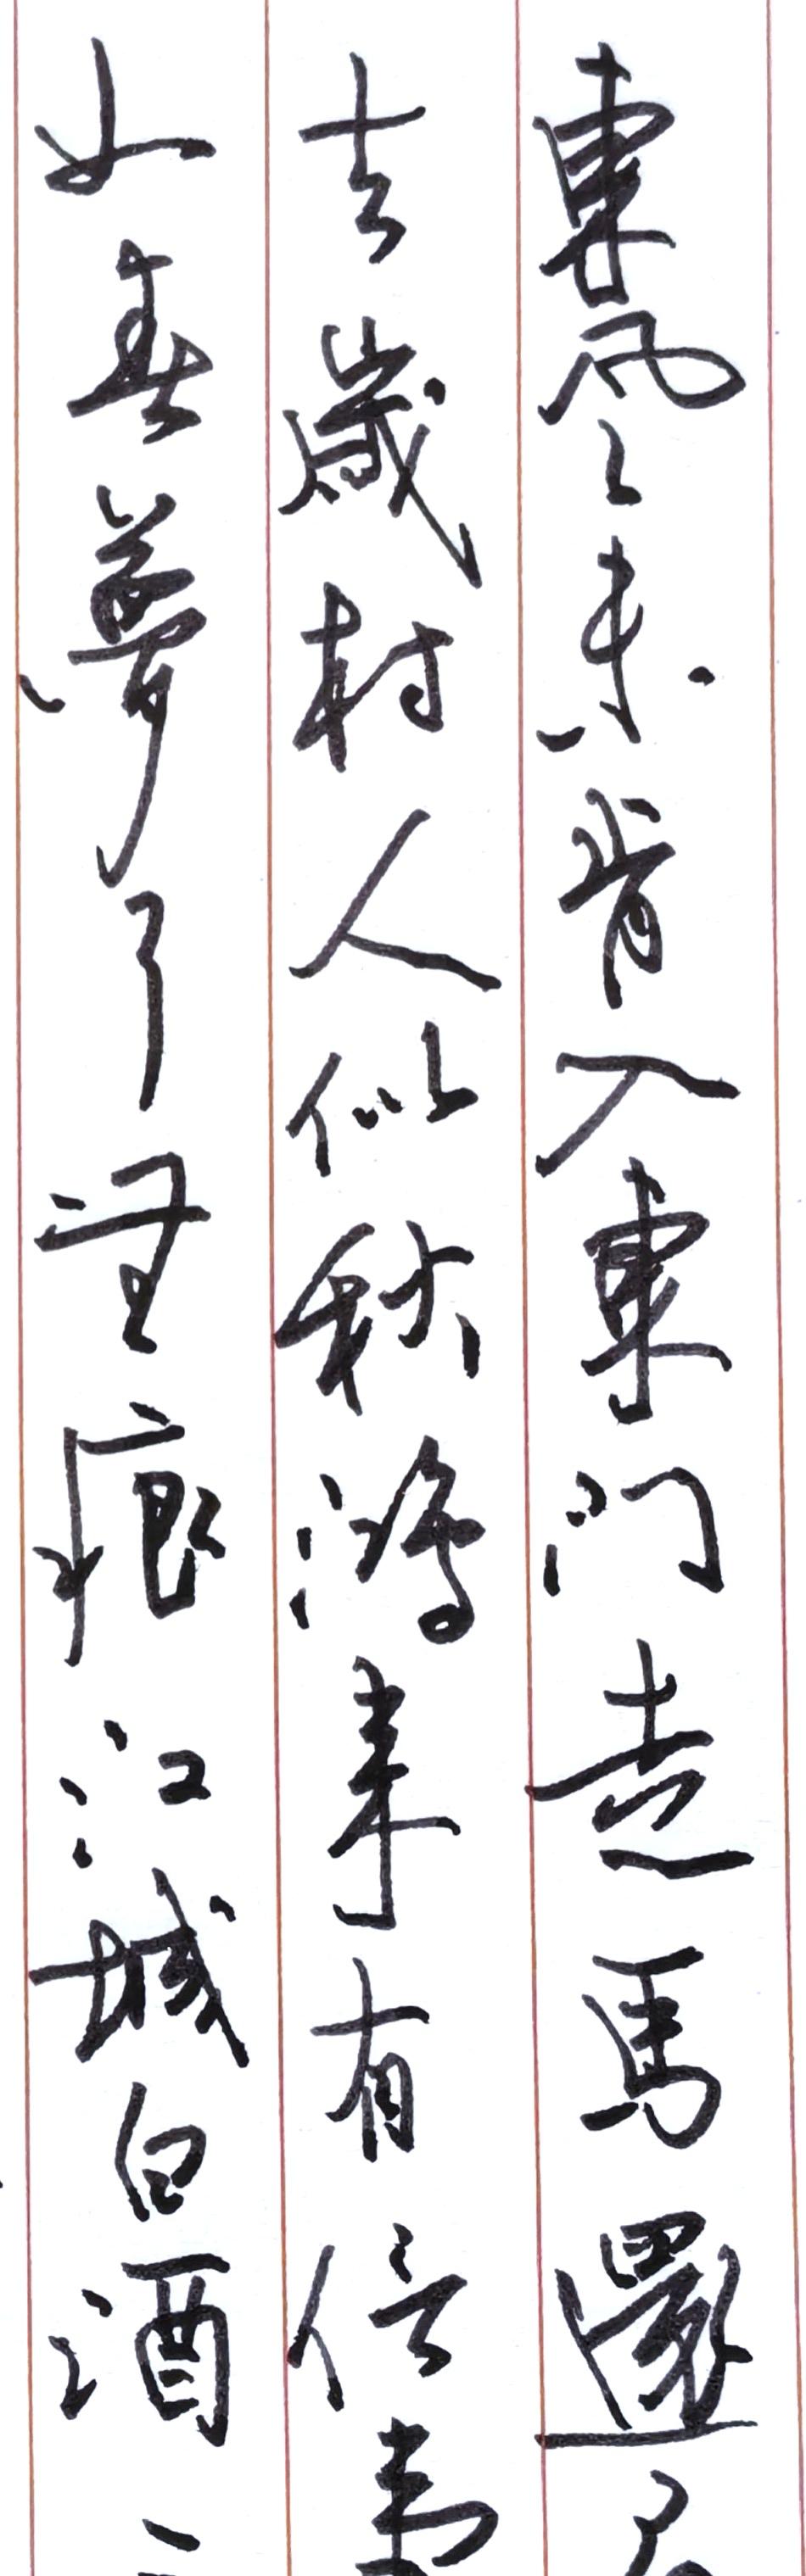 東風未肯入東門走馬還
去歲村人似秋鴻來有信事
如春夢了無痕江城白酒